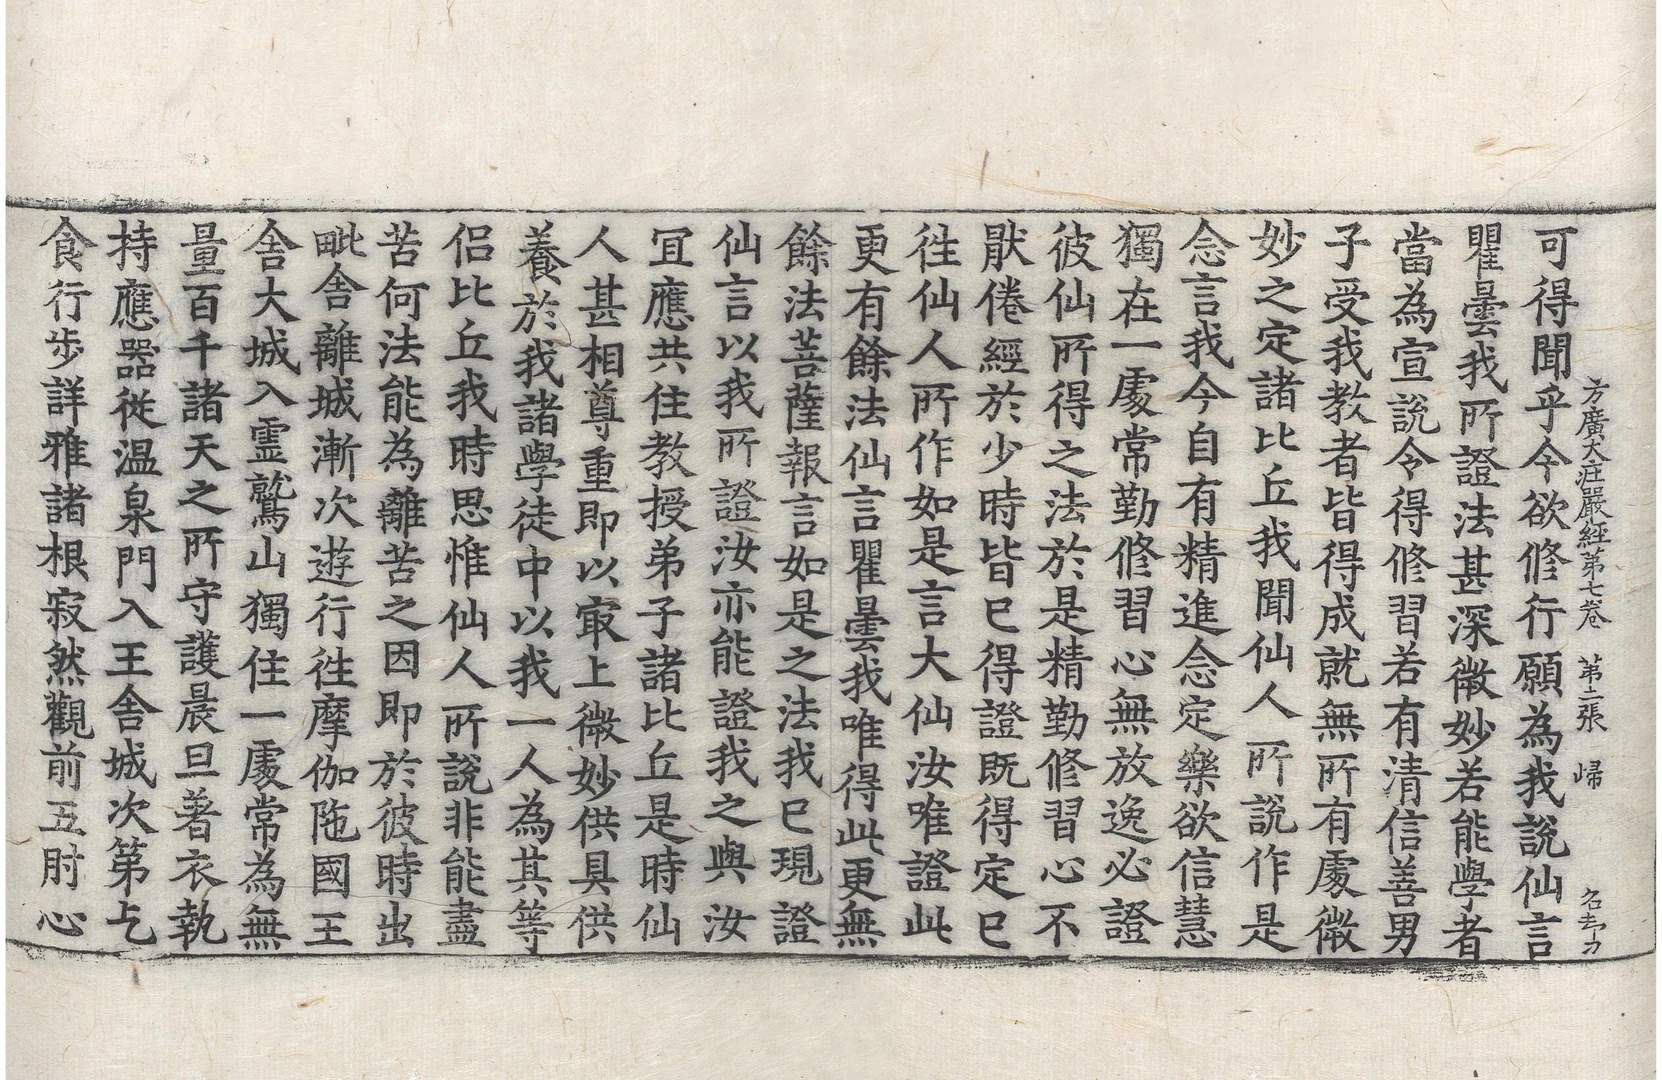 方廣大莊嚴經第七卷 第二張 歸
可得聞乎今欲修行願為我說仙言
瞿曇我所證法甚深微妙若能學者
當為宣說令得修習若有清信善男
子受我教者皆得成就無所有處微
妙之定諸比丘我聞仙人所說作是
念言我今自有精進念定樂欲信慧
獨在一處常勤修習心無放逸必證
彼仙所得之法於是精勤修習心不
猒倦經於少時皆已得證既得定已
往仙人所作如是言大仙汝唯證此
更有餘法仙言瞿曇我唯得此更無
餘法菩薩報言如是之法我已現證
仙言以我所證汝亦能證我之與汝
冝應共住教授弟子諸比丘是時仙
人甚相尊重即以㝡上微妙供具供
養於我諸學徒中以我一人為其等
侶比丘我時思惟仙人所說非能盡
苦何法能為離苦之因即於彼時出
毗舍離城漸次遊行往摩伽陁國王
舍大城入靈鷲山獨住一處常為無
量百千諸天之所守護晨旦著衣執
持應器從温泉門入王舍城次第乞
食行步詳雅諸根寂然觀前五肘心